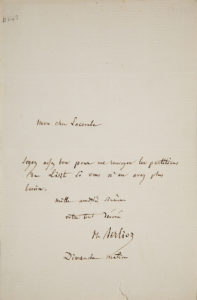 Mon cher Lacombe
Soyez assez bon pour me renvoyer les partitions
de Liszt si vous n'en avez plus
besoin.
mille amitiés
votre tout dévoué
H. Berlioz
Dimanche matin